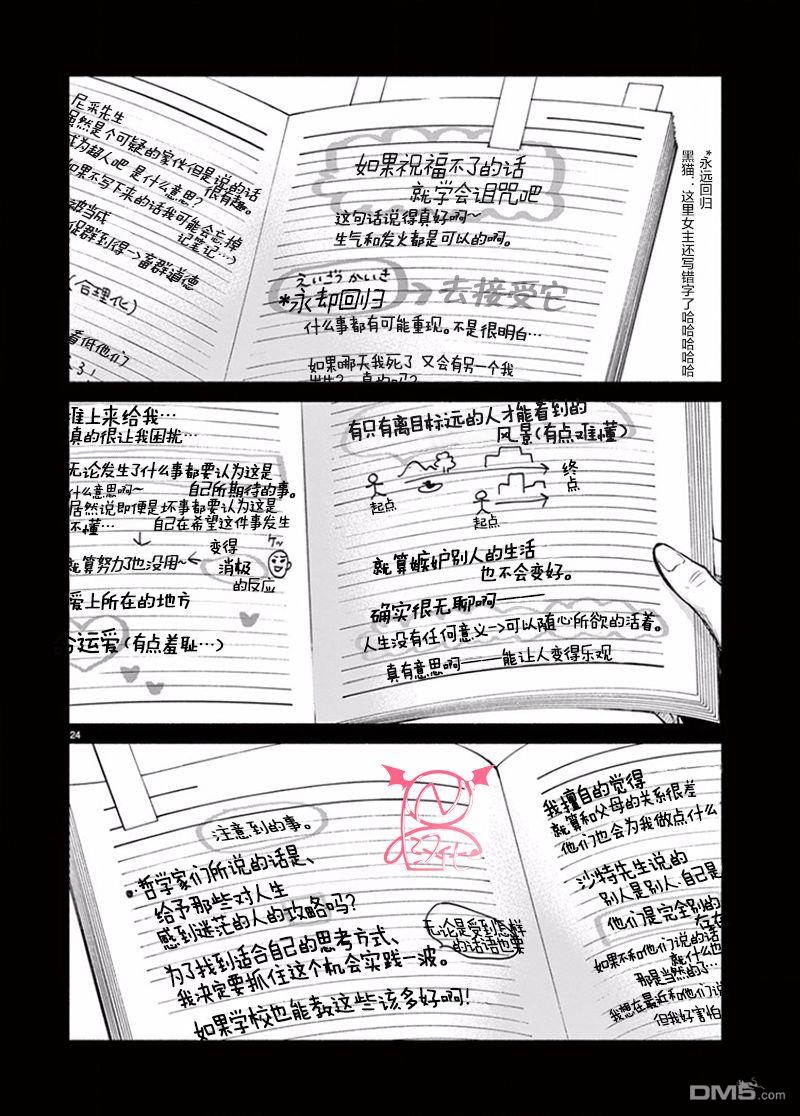 尼采先生
虽然是个可疑的家伙但是说的话
很有趣。
成为超人吧 是什么意思?
如果不写下来的话我可能会忘掉
记笔记…)
被当成
从群到得→畜群道德
(合理化)
看低他们
2.3!
如果祝福不了的话
就学会诅咒吧
这句话说得真好啊~
生气和发火都是可以的啊。
えいごうかいき
*永却回归
去接受它
什么事都有可能重现。不是很明白…
如果哪天我死了 又会有另一个我
出生? 真的吗?
*永远回归
黑猫:这里女主还写错字了哈哈哈哈哈
谁上来给我…
真的很让我困扰…
无论发生了什么事都要认为这是
什么意思啊~ 自己所期待的事。
居然说即便是坏事都要认为这是
不懂… 自己在希望这件事发生
就算努力了也没用~
变得
消极
的反应
爱上所在的地方
命运爱(有点羞耻…)
有只有离目标远的人才能看到的
风景(有点难懂)
起点
起点
终点
就算嫉妒别人的生活
也不会变好。
确实很无聊啊——
人生没有任何意义→可以随心所欲的活着。
真有意思啊——能让人变得乐观
24
注意到的事。
•哲学家们所说的话是、
给予那些对人生
感到迷茫的人的攻略吗?
为了找到适合自己的思考方式、
我决定要抓住这个机会实践一波。
如果学校也能教这些该多好啊!
无论是受到怎样
的话语也要
汉化
我擅自的觉得
就算和父母的关系很差
他们也会为我做点什么
沙特先生说的
别人是别人,自己是
他们是完全别的
存在
如果不和他们说的话
就什么也
那是当然的…
我想在最近和他们说
但我好害怕
DM5.com